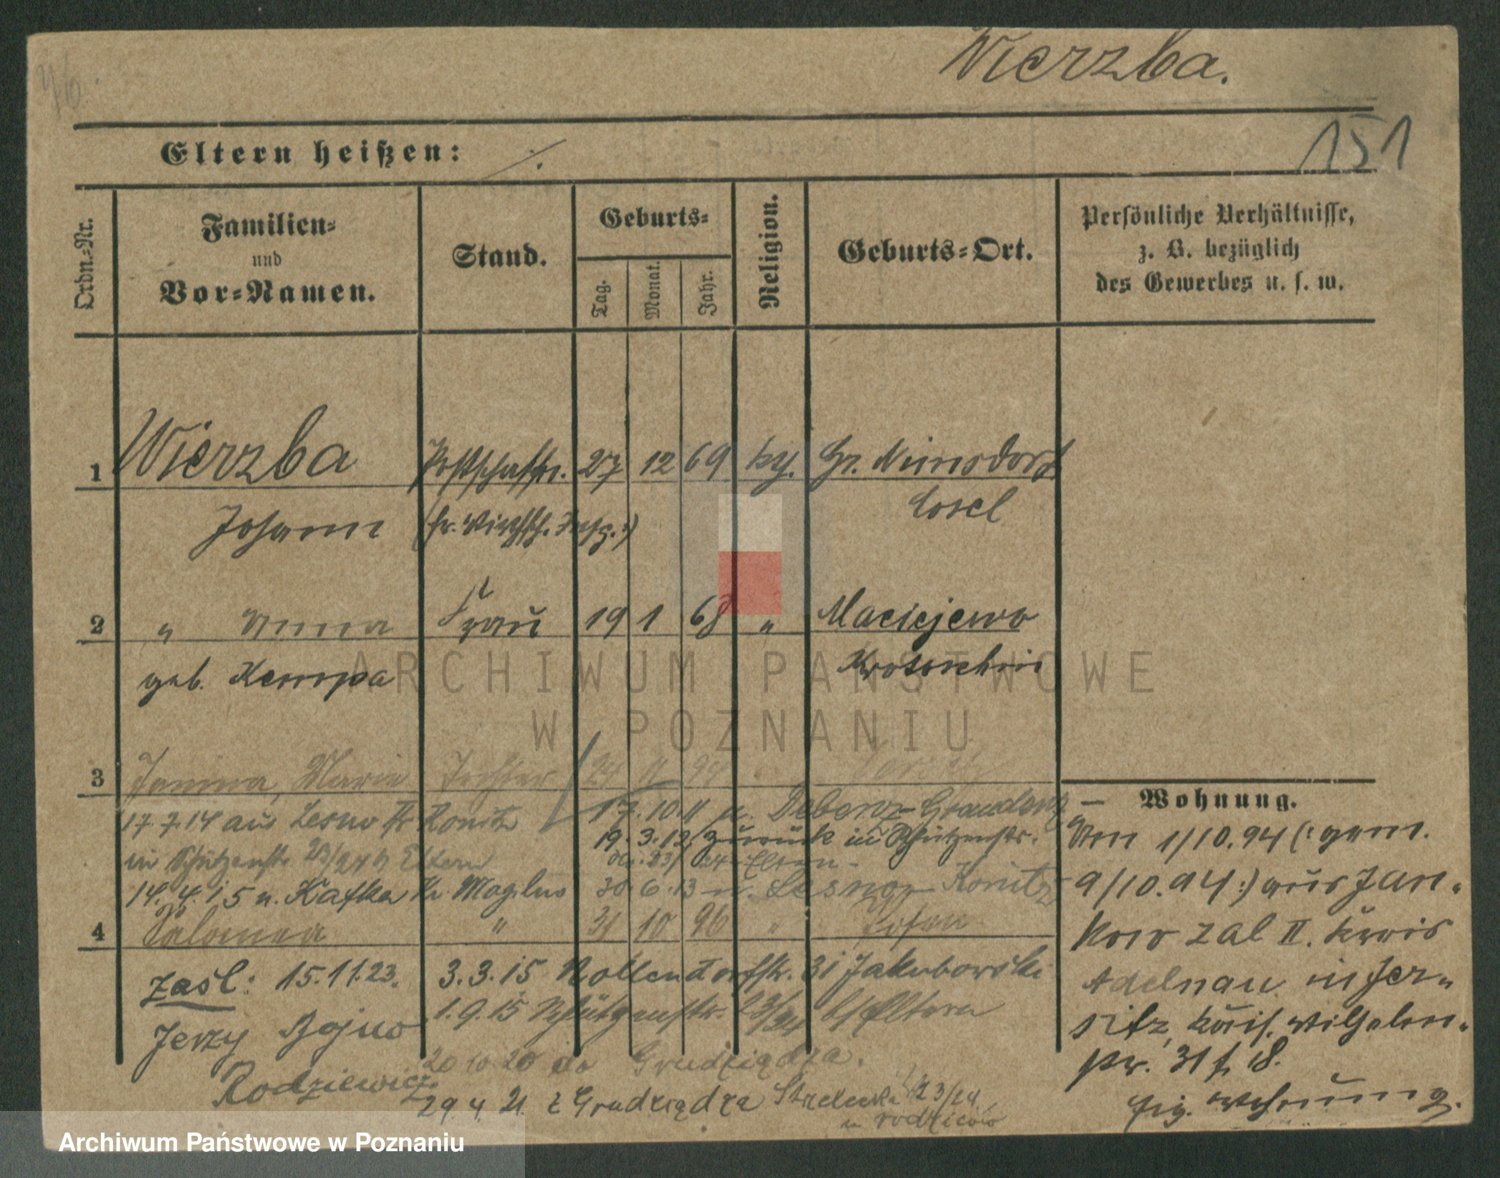 Wierzba.
151
Eltern heißen: ./.
Ordn.-Nr.
Familien-
und
Vor-Namen.
Stand.
Geburts-
Tag.
Monat.
Jahr.
Religion.
Geburts-Ort.
Persönliche Verhältnisse,
z. B. bezüglich
des Gewerbes u. s. w.
1 Wierzba 27 12 69 Gr. Nimsdorf
Johann Cosel
2 " Anna Frau 19 1 68 " Maciejewo
geb. Kempa Krotoschin
3 Janina, Marie Tochter
17 7.14 aus Lesno Kr Konitz 17.10.11 n. Debenz Graudenz
19.3.12 zurück in Schützenstr.
in Schützenstr. 23/24 b Eltern
14.4.15 n. Kafka Kr Mogilno 30.6.13 n. Lesno Konitz
4 Salomea " 31 10 96 "
zaśl: 15.11.23. 3.3.15 Nollendorfstr. 31 Jakubowski
Jerzy Bojno 1.9.15 Schützenstr. 23/24 b/Eltern
Rodziewicz 20 10 20 do Grudziądza.
29 4. 21 z Grudziądza Strzelecka 23/24
u rodziców
Wohnung.
Von 1/10.94 (: gem.
9/10.94 :) aus Jan-
kow zal II. Kreis
Adelnau in Jer-
sitz, Kais. Wilhelm-
str. 31 f. 18.
eig. Wohnung.
ARCHIWUM PAŃSTWOWE
W POZNANIU
Archiwum Państwowe w Poznaniu